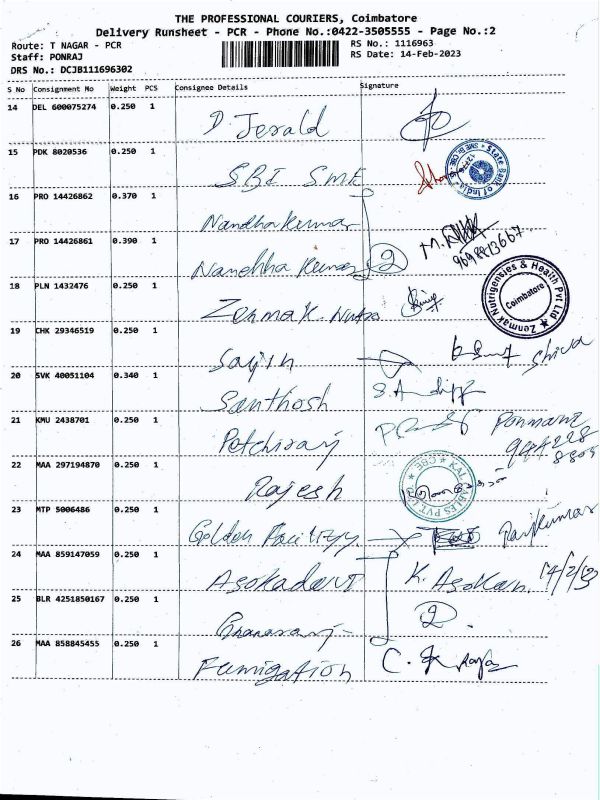 THE PROFESSIONAL COURIERS, Coimbatore
Delivery Runsheet - PCR - Phone No.:0422-3505555 - Page No.:2
Route: T NAGAR - PCR
RS No.: 1116963
Staff: PONRAJ
RS Date: 14-Feb-2023
DRS No.: DCJB111696302
S No Consignment No Weight PCS Consignee Details Signature
14 DEL 600075274 0.250 1
D Jerald
15 PDK 8020536 0.250 1
State Bank of India
SBI SME
16 PRO 14426862 0.370 1
Nandha Kumar
17 PRO 14426861 0.390 1
Nandhha Kumar 2
18 PLN 1432476 0.250 1
Zenmak Nutrigencies & Health Pvt Ltd
Coimbatore
Zenmak Nutra
19 CHK 29346519 0.250 1
Shiva
Sajith
20 SVK 40051104 0.340 1
Santhosh
21 KMU 2438701 0.250 1
Petchiraj
22 MAA 297194870 0.250 1
Rajesh
23 MTP 5006486 0.250 1
Rajkumar
Golden
24 MAA 859147059 0.250 1
K. Asokan 14/2/23
25 BLR 4251850167 0.250 1
2
26 MAA 858845455 0.250 1
Fumigation